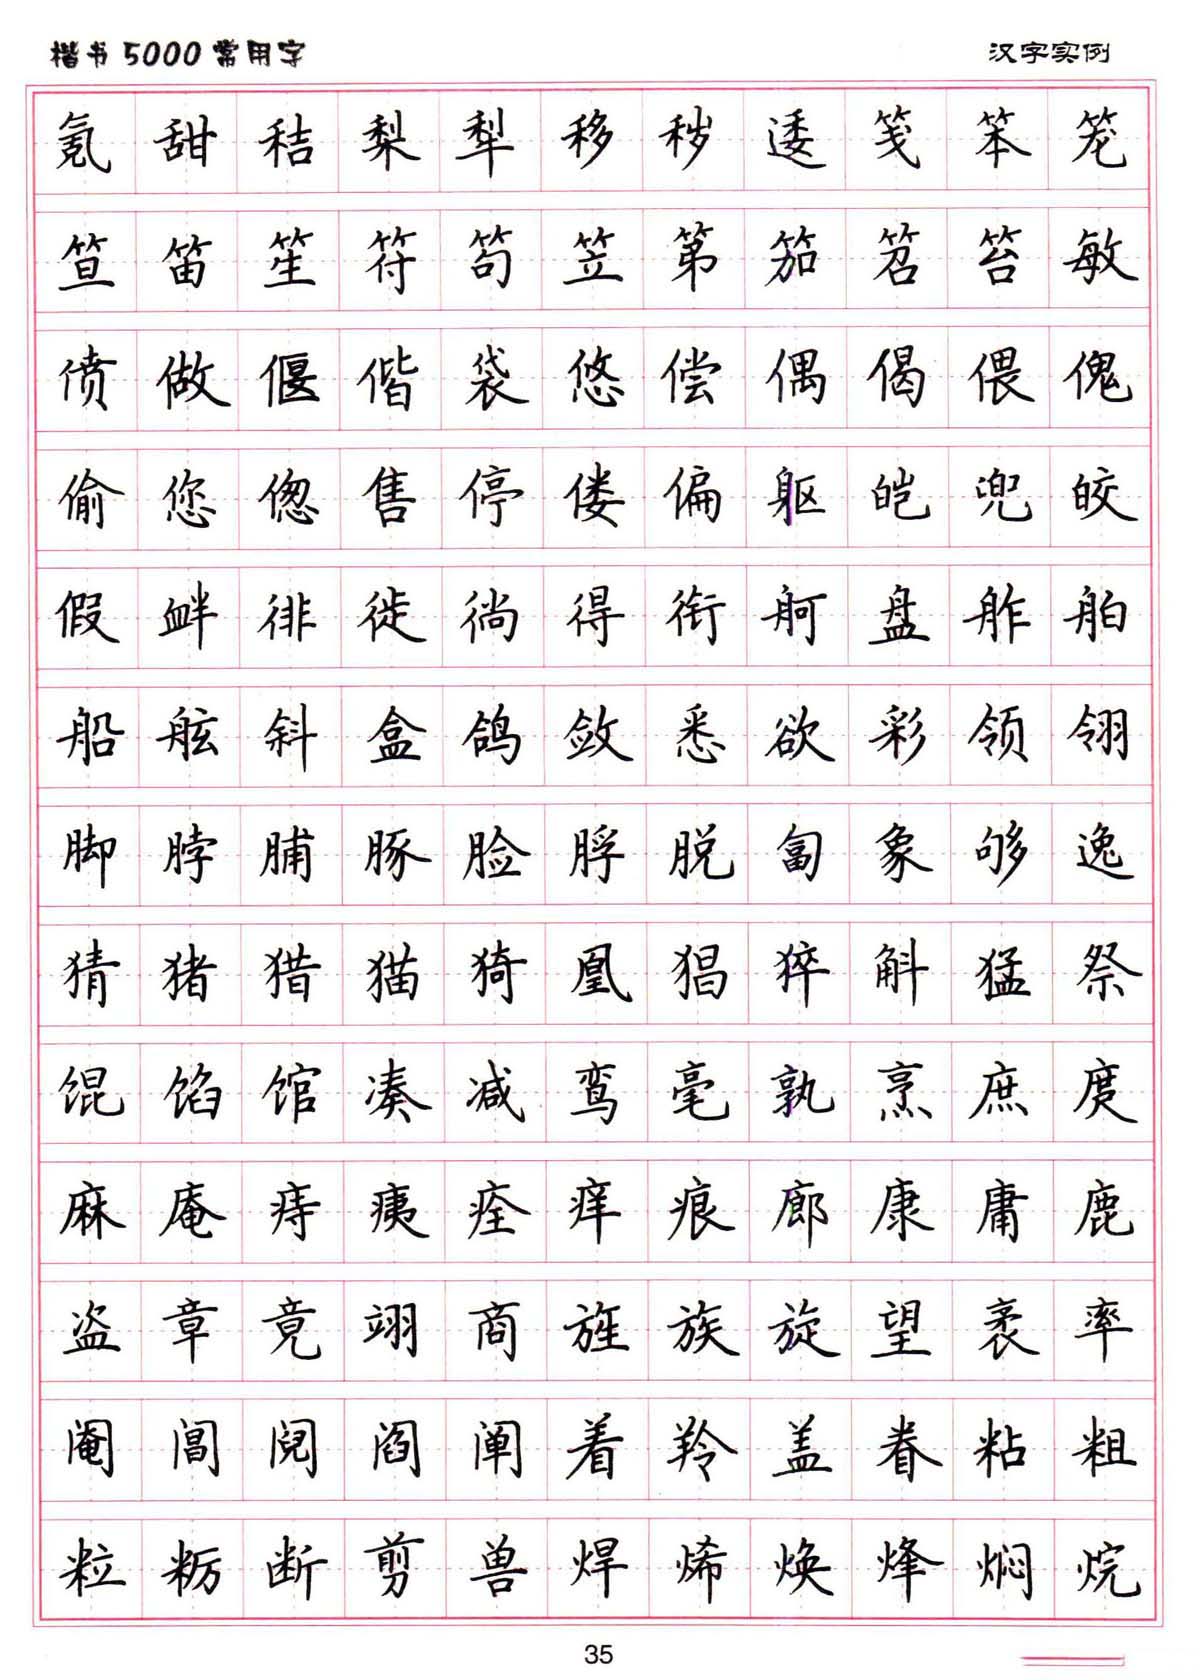 楷书5000常用字 汉字实例
氪甜秸梨犁移秽逶笺笨笼
笪笛笙符笱笠第笳笤笞敏
偾做偃偕袋悠偿偶偈偎傀
偷您偬售停偻偏躯皑兜皎
假衅徘徙徜得衔舸盘舴舶
船舷斜盒鸽敛悉欲彩领翎
脚脖脯豚脸脬脱匐象够逸
猜猪猎猫猗凰猖猝斛猛祭
馄馅馆凑减鸾毫孰烹庶度
麻庵痔痍痊痒痕廊康庸鹿
盗章竟翊商旌族旋望袤率
阉阊阋阎阐着羚盖眷粘粗
粒粝断剪兽焊烯焕烽焖烷
35